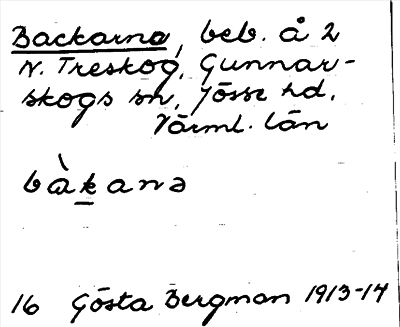 Backarna, beb. å 2
N. Treskog, Gunnar-
skogs sn, Jösse hd.
Värml. län
bàk̲anə
16 Gösta Bergman 1913-14